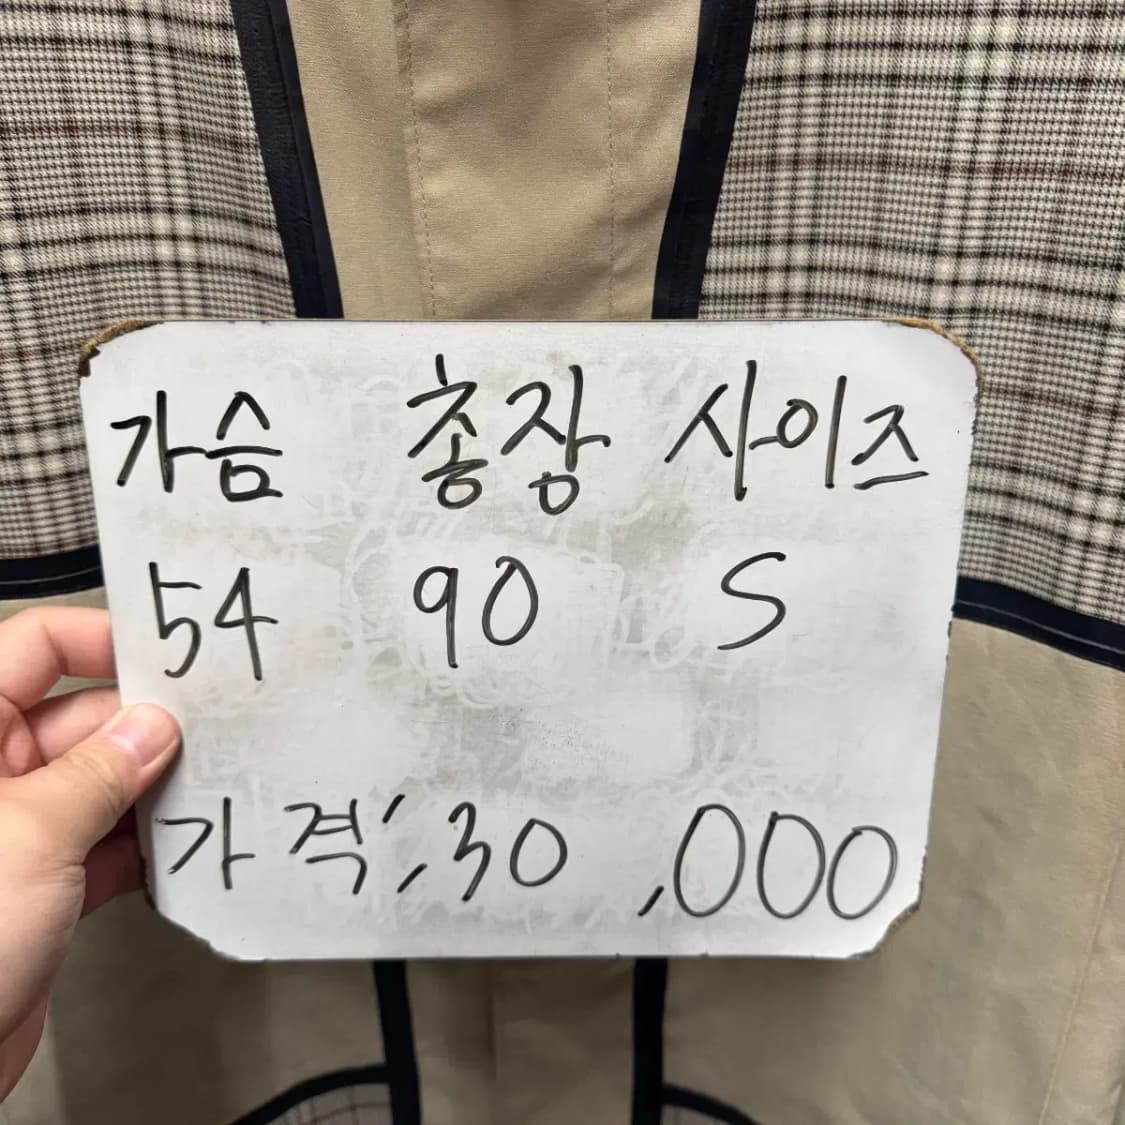 가슴 총장 사이즈
54 90 S
가격; 30,000